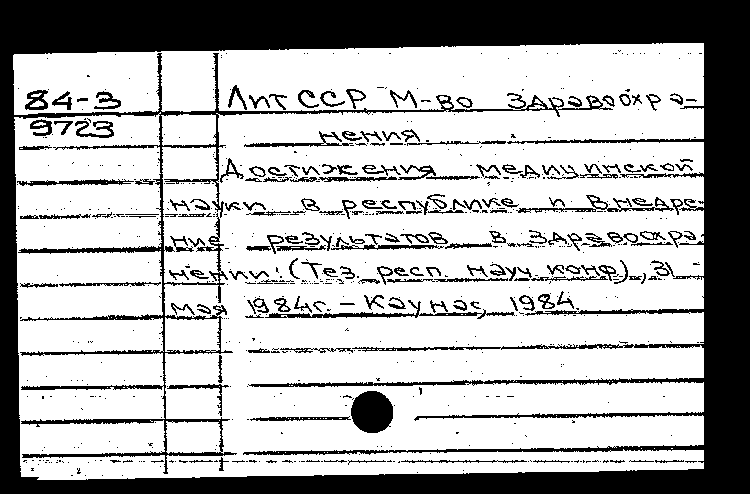 84-3
9723
Лит ССР. М-во здравоохра-
нения.
Достижения медицинской
науки в республике и внедре-
ние результатов в здравоохра-
нении: (Тез. респ. науч. конф), 31
мая 1984г. – Каунас, 1984